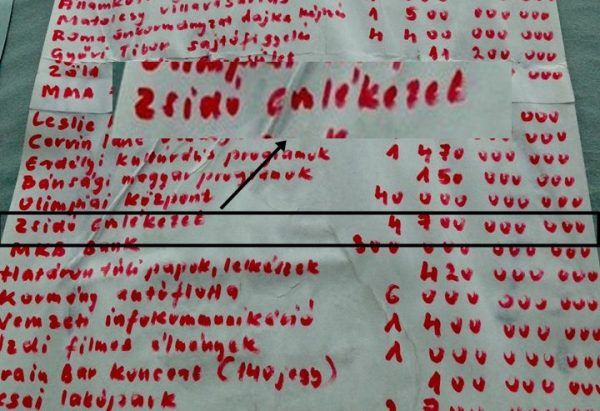 Államkötv
Matolcsy villavásárlás 1 500 000 000
Roma önkormányzat dajka képző 4 400 000 000
Győri Tibor sajtófigyelő 11 200 000
Zöld
MMA
Olimpiai
Zsidó emlékezet
Leslie 000
Corvin lánc 000 000
Erdélyi kulturális programok 1 470 000 000
Bánsági magyar programok 150 000 000
Olimpiai központ 40 000 000 000
Zsidó emlékezet 4 700 000 000
MKB Bank 300 000 000 000
Határon túli papok, lelkészek 420 000 000
Kormány autóflotta 6 000 000 000
Nemzeti infokommunikáció 1 400 000 000
filmes élmények 1 000 000
Bar koncert (140 jegy) 000
lakópark 100 000 000